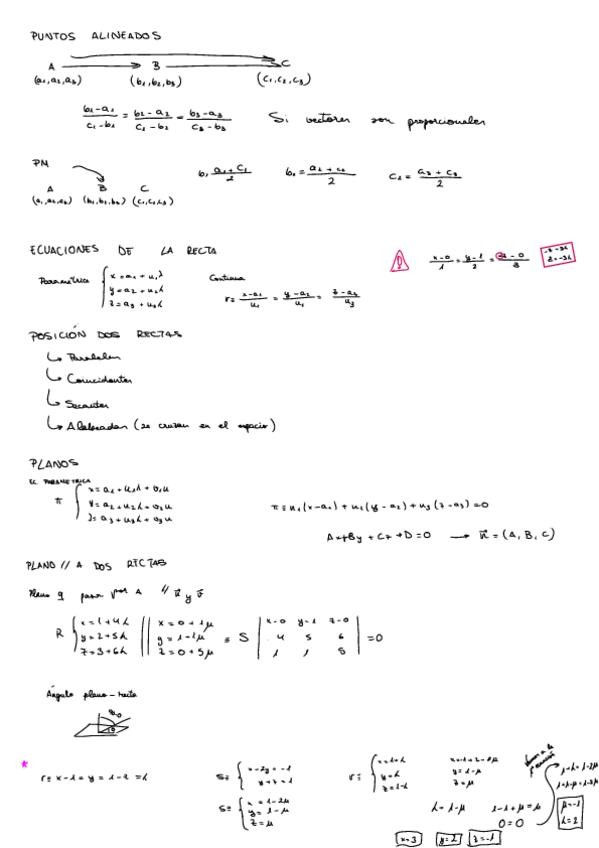 PUNTOS ALINEADOS
A B C
(a₁,a₂,a₃) (b₁,b₂,b₃) (c₁,c₂,c₃)
b₁-a₁/c₁-b₁ = b₂-a₂/c₂-b₂ = b₃-a₃/c₃-b₃ Si vectores son proporcionales
PM
A B C
b₁ a₁+c₁/2 b₂= a₂+c₂/2 a₃+c₃/2
ECUACIONES DE LA RECTA
x-0/1 = y-1/2 = 0/3
Paramétrica Continua
x=a₁+u₁λ
y=a₂+u₂λ
z=a₃+u₃λ
r≡ x-a₁/u₁ = y-a₂/u₁ = z-a₃/u₃
POSICIÓN DOS RECTAS
↳ Paralelas
↳ Coincidentes
↳ Secantes
↳ Alabeadas (se cruzan en el espacio)
PLANOS
EC PARAMETRICA
π x=a₁+u₁λ+v₁μ
y=a₂+u₂λ+v₂μ
z=a₃+u₃λ+v₃μ
π≡u₁(x-a₁)+u₂(y-a₂)+u₃(z-a₃)=0
Ax+By+Cz+D=0 → n=(A,B,C)
PLANO // A DOS RECTAS
Plano q pasa por A //
R x=1+4λ
y=2+5λ
z=3+6λ
x=0+1μ
y=1-1μ
z=0+5μ
S
x-0 y-1 z-0
4 5 6
1 1 5
=0
Ángulo plano-recta
90
* r≡x-1=y=1-z=λ
s≡ x-2y=-1
y+z=1
s≡ x=1-2μ
y=1-μ
z=μ
r≡ x=1+λ
y=λ
z=1-λ
y=1-μ
z=μ
λ=1-μ 1-1+μ=μ
0=0
1+λ=1-2μ
1+1-μ=1-2μ
μ=-1
λ=2
x=3 y=2 z=-1